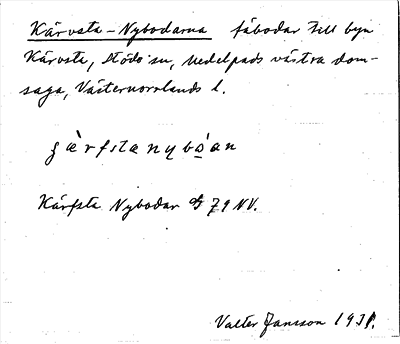 Kärvsta-Nybodarna fäbodar till byn
Kärvsta, Stöds sn, Medelpads västra dom-
saga, Västernorrlands l.
Kärfsta Nybodar 79 NV.
Valter Jansson 1931.